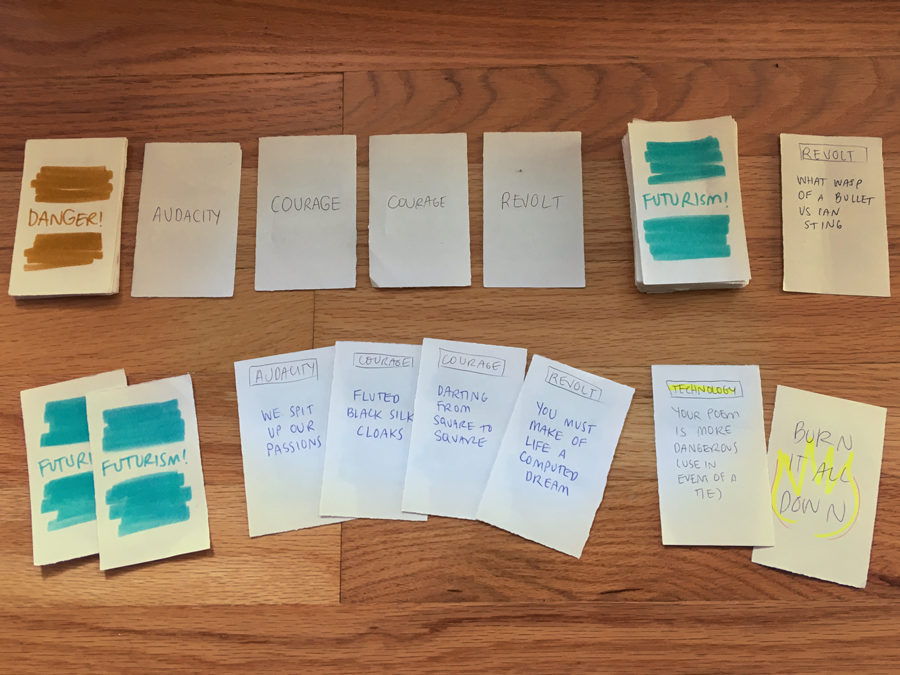 DANGER!
AUDACITY
COURAGE
COURAGE
REVOLT
FUTURISM!
REVOLT
WHAT WASP
OF A BULLET
US CAN
STING
FUTURI
FUTURISM!
AUDACITY
WE SPIT
UP OUR
PASSIONS
COURAGE
FLUTED
BLACK SILK
CLOAKS
COURAGE
DARTING
FROM
SQUARE TO
SQUARE
REVOLT
YOU MUST
MAKE OF
LIFE A
COMPUTED
DREAM
TECHNOLOGY
YOUR POEM
IS MORE
DANGEROUS
(USE IN
EVENT OF A
TIE)
BURN
IT ALL
DOWN